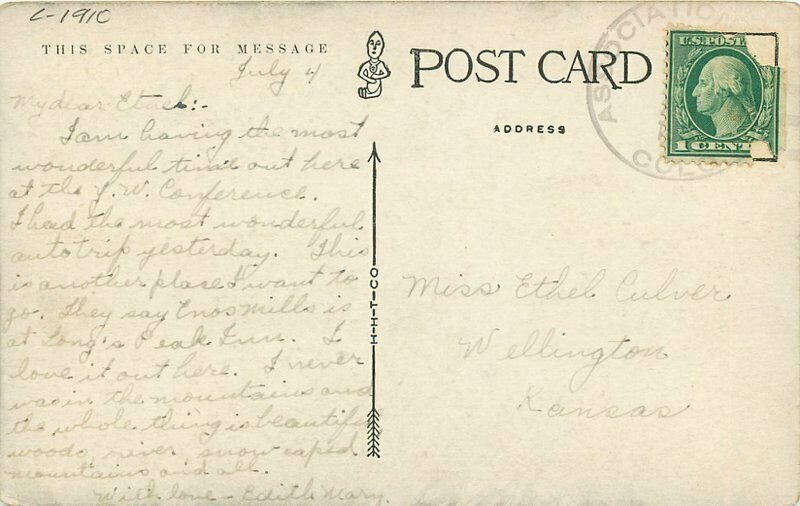 C-1910
THIS SPACE FOR MESSAGE
July 4
My dear Ethel:-
I am having the most
wonderful time out here
at the Y.W. Conference.
I had the most wonderful
auto trip yesterday. This
is another place I want to
go. They say Enos Mills is
at Long's Peak Inn. I
love it out here. I never
was in the mountains and
the whole thing is beautiful
woods, river, snow caped
mountains and all.
With love - Edith Mary.
H-H-T-CO
POST CARD
ADDRESS
ASSOCIATION
COLO
U.S. POST
1 CENT
Miss Ethel Culver
Wellington
Kansas